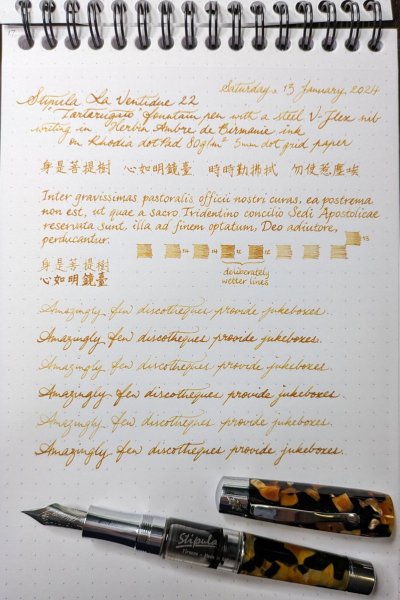 Saturday, 13 January 2024
Stipula La Ventidue 22
'Tartarugato' fountain pen with a steel V-Flex nib
writing in Herbin Ambre de Birmanie ink
on Rhodia dotPad 80g/m² 5mm dot grid paper
身是菩提樹 心如明鏡臺 時時勤拂拭 勿使惹塵埃
Inter gravissimas pastoralis officii nostri curas, ea postrema
non est, ut quae a sacro Tridentino concilio Sedi Apostolicae
reservata sunt, illa ad finem optatum, Deo adiutore,
perducantur.
13
14 14 12 12
身是菩提樹
心如明鏡臺
deliberately
wetter lines
Amazingly few discotheques provide jukeboxes.
Amazingly few discotheques provide jukeboxes.
Amazingly few discotheques provide jukeboxes.
Amazingly few discotheques provide jukeboxes.
Amazingly few discotheques provide jukeboxes.
Amazingly few discotheques provide jukeboxes.
Stipula